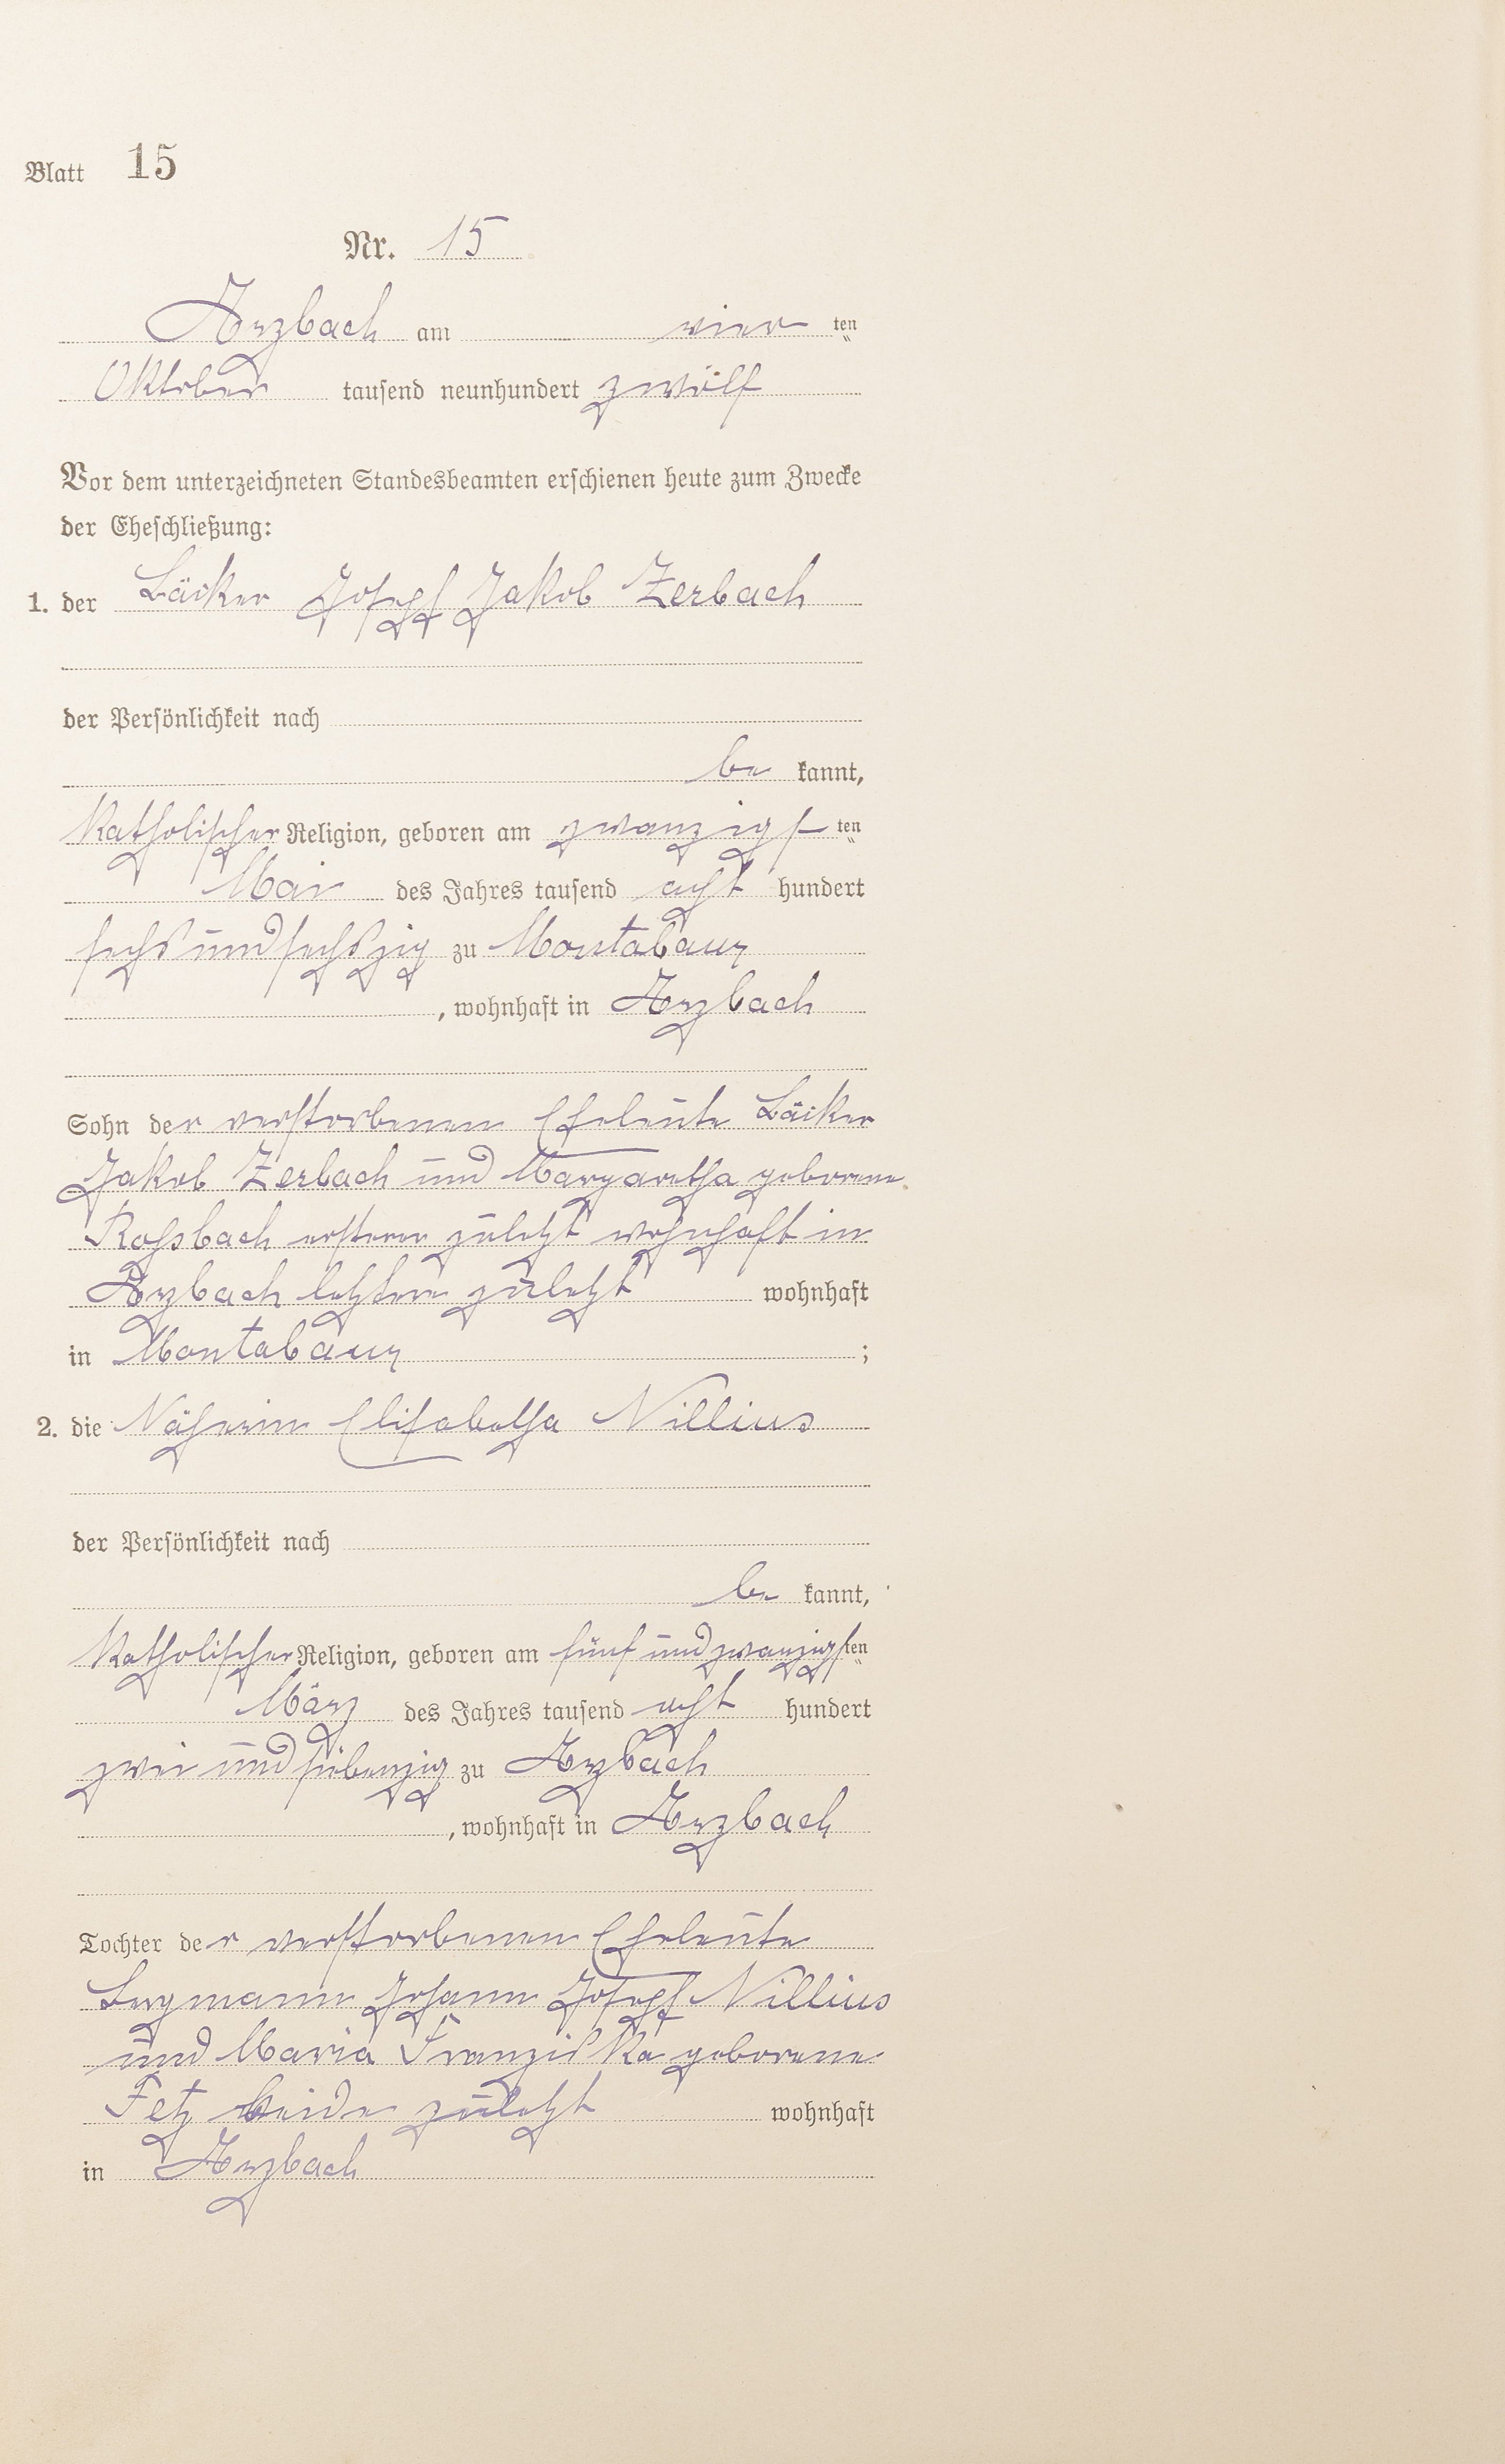 Blatt 15
Nr. 15
Arzbach am vier ten
Oktober tausend neunhundert zwölf
Vor dem unterzeichneten Standesbeamten erschienen heute zum Zwecke
der Eheschließung:
1. der Bäcker Joseph Jakob Zerbach
der Persönlichkeit nach
be kannt,
katholischer Religion, geboren am zwanzigs ten
Mai des Jahres tausend acht hundert
sechsundsechszig zu Montabaur
, wohnhaft in Arzbach
Sohn der verstorbenen Eheleute Bäcker
Jakob Zerbach und Margaretha geborene
Rossbach ersterer zuletzt wohnhaft in
Arzbach letztere zuletzt wohnhaft
in Montabaur ;
2. die Näherin Elisabetha Nillius
der Persönlichkeit nach
be kannt,
katholischer Religion, geboren am fünfundzwanzigsten
März des Jahres tausend acht hundert
zweiundsiebenzig zu Arzbach
, wohnhaft in Arzbach
Tochter der verstorbenen Eheleute
Bergmann Johann Joseph Nillius
und Maria Franziska geborene
Fetz beide zuletzt wohnhaft
in Arzbach